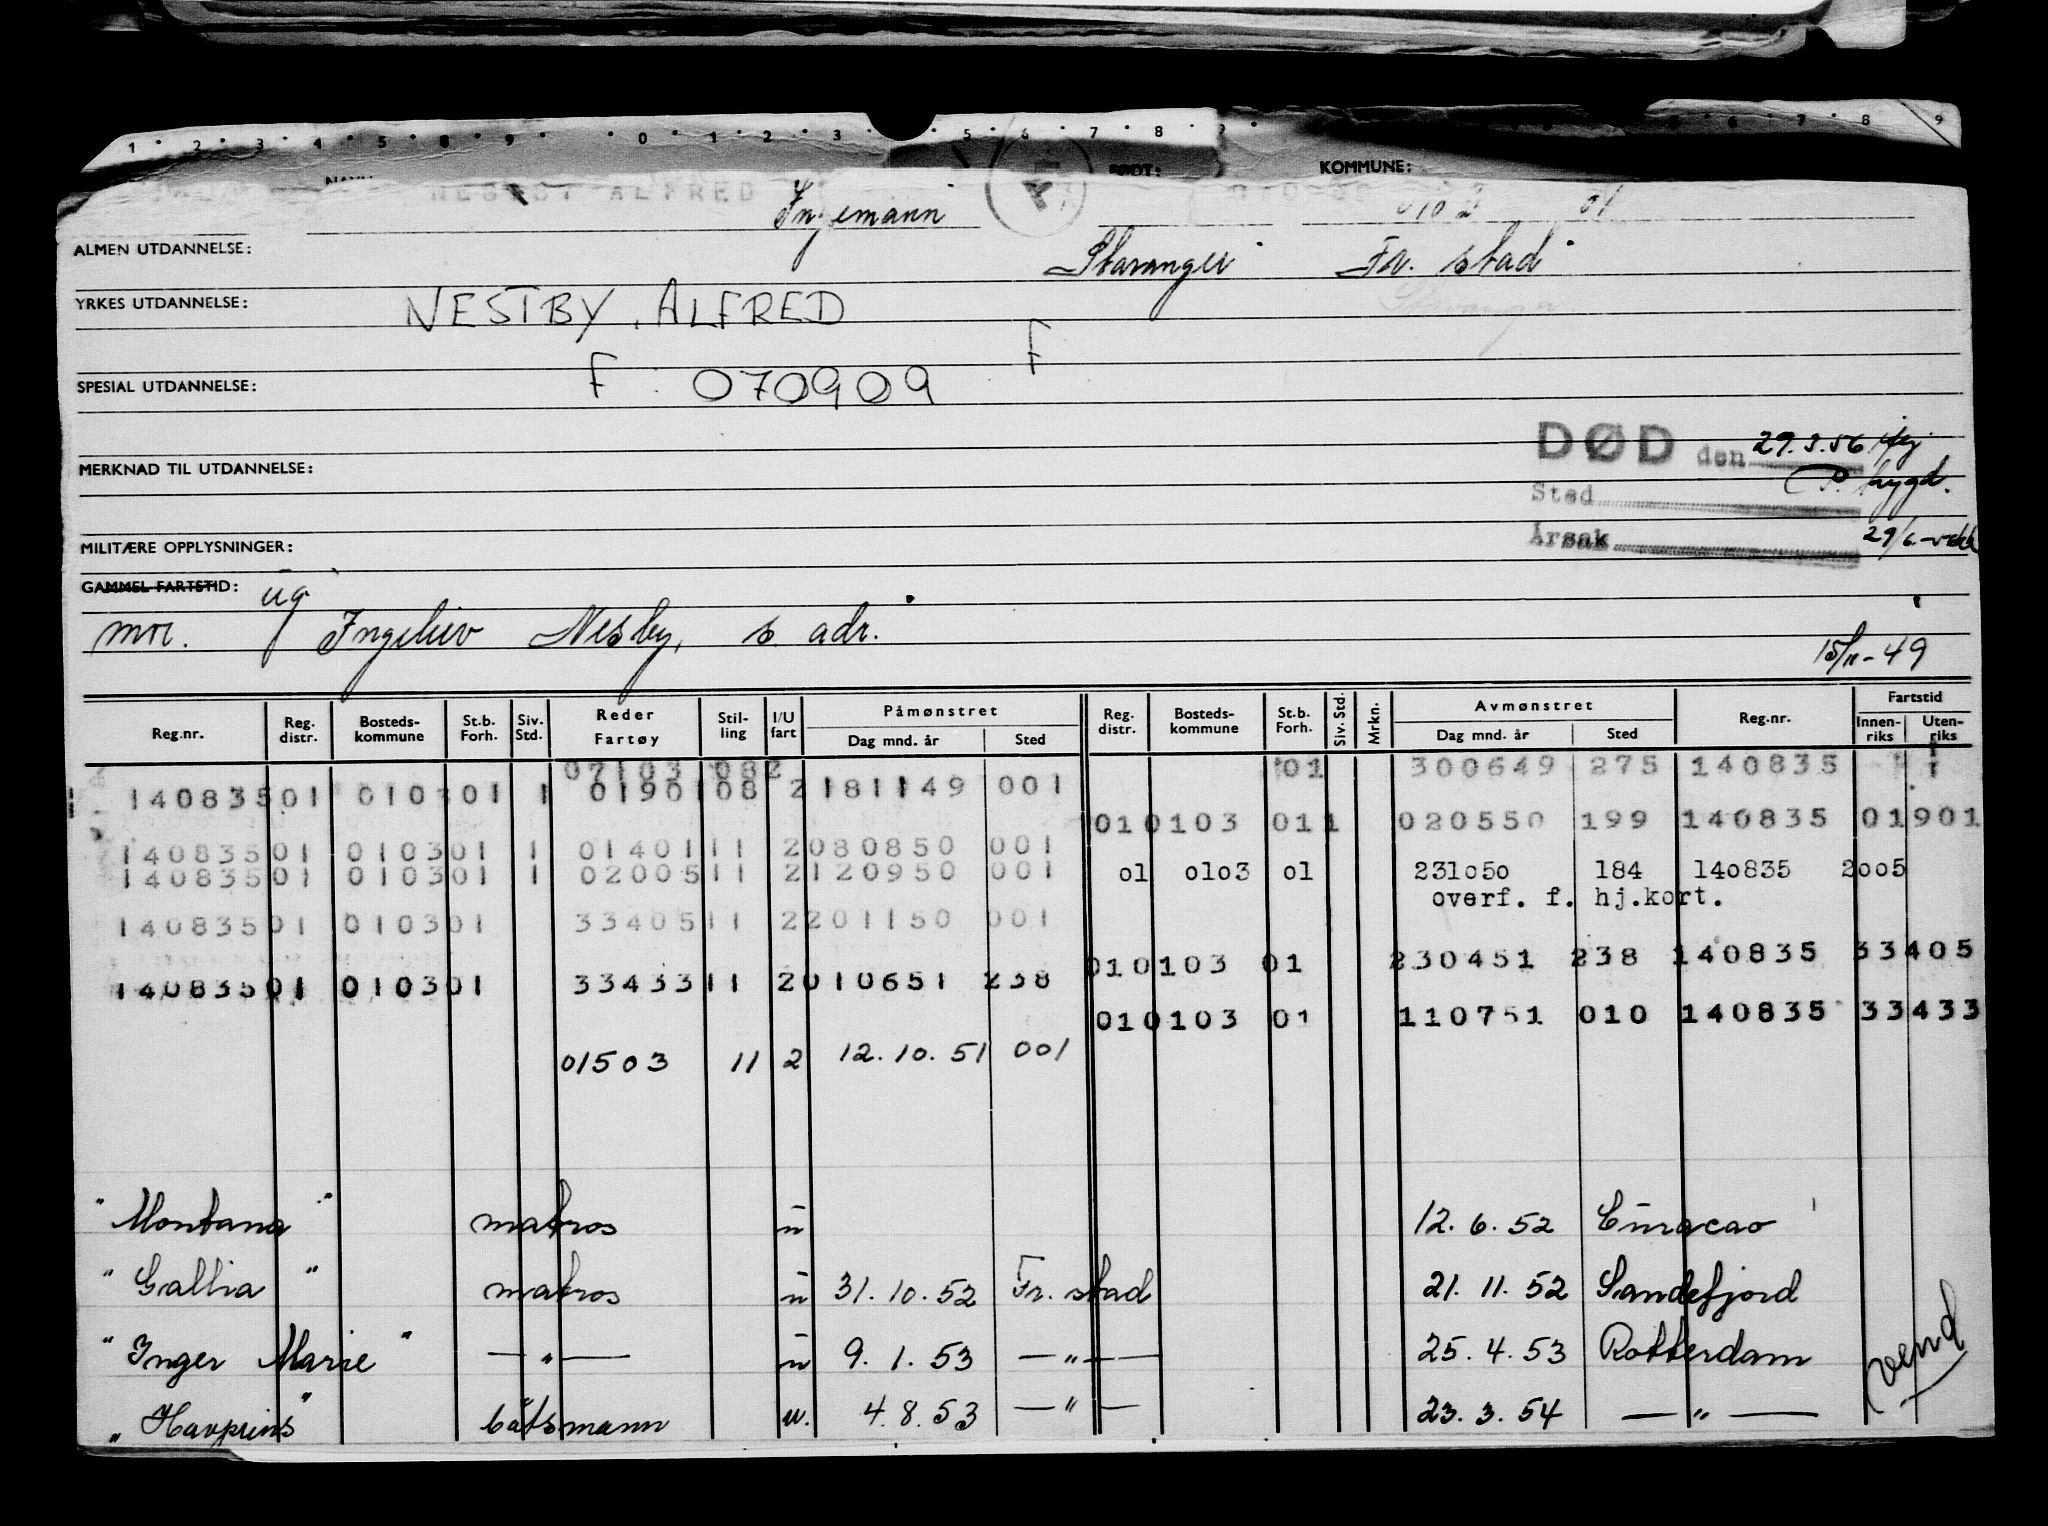 1 · 2 · 3 · 4 · 5 · 8 · 9 · 0 · 1 · 2 · 3 · 5 · 6 · 7 · 8 · 6 · 7 · 8 9
KOMMUNE:
ALFRED Ingemann 01
ALMEN UTDANNELSE: Stavanger Fr. stad
YRKES UTDANNELSE: NESTBY, ALFRED
F
SPESIAL UTDANNELSE: F 070909
DØD den 29.3.56
MERKNAD TIL UTDANNELSE:
Sted
MILITÆRE OPPLYSNINGER:
Årsak
GAMMEL FARTSTID: ug
mor. Nesby, s. adr. 15/11-49
Reg.nr. Reg. distr. Bosteds- kommune St.b. Forh. Siv. Std. Reder Fartøy Stil- ling I/U fart Påmønstret Dag mnd. år Sted Reg. distr. Bosteds- kommune St.b. Forh. Siv. Std. Mrkn. Avmønstret Dag mnd. år Sted Reg.nr. Fartstid Innen- riks Uten- riks
07103 082 01 300649 275 140835
140835 01 0103 01 1 01901 08 2 181149 001
01 0103 01 1 020550 199 140835 01901
140835 01 0103 01 1 01401 11 2 080850 001
140835 01 0103 01 1 02005 11 2 120950 001 01 0103 01 231050 184 140835 2005
overf. f. hj.kort.
140835 01 0103 01 33405 11 2 201150 001
01 0103 01 230451 238 140835 33405
140835 01 0103 01 33433 11 2 010651 238
01 0103 01 110751 010 140835 33433
01503 11 2 12.10.51 001
"Montana" matros u 12.6.52 Curacao
"Gallia" matros u 31.10.52 Fr. stad 21.11.52 Sandefjord
"Inger Marie" — " — u 9.1.53 — " — 25.4.53 Rotterdam
"Havprins" båtsmann u. 4.8.53 — " — 23.3.54 — " —
vend